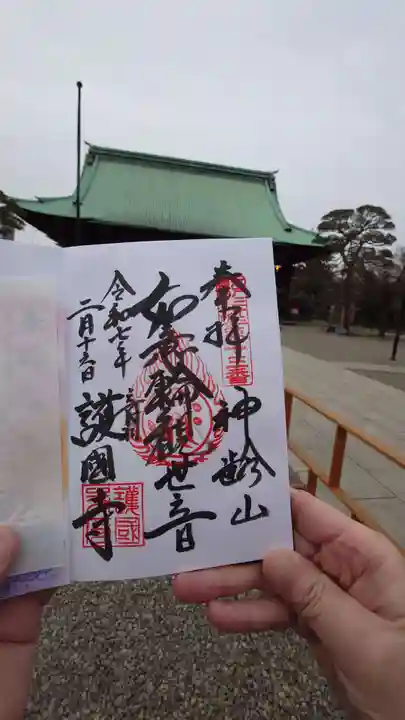 奉拝 神齢山
如意輪観世音
令和七年
二月十五日
護國寺